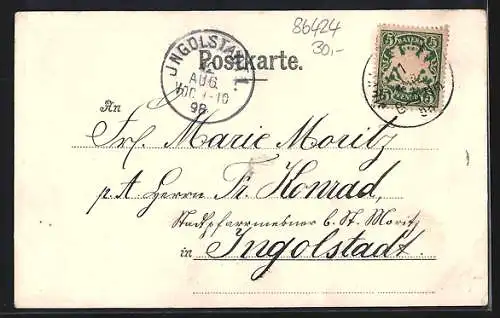 86424
30,-
Postkarte.
5 BAYERN 5
INGOLSTADT I.
12
AUG.
VOR. 9-10
98
An
Frl. Marie Moritz
p. A. Herrn Fr. Konrad,
Stadtpfarrmesner b. St. Moritz
in Ingolstadt.